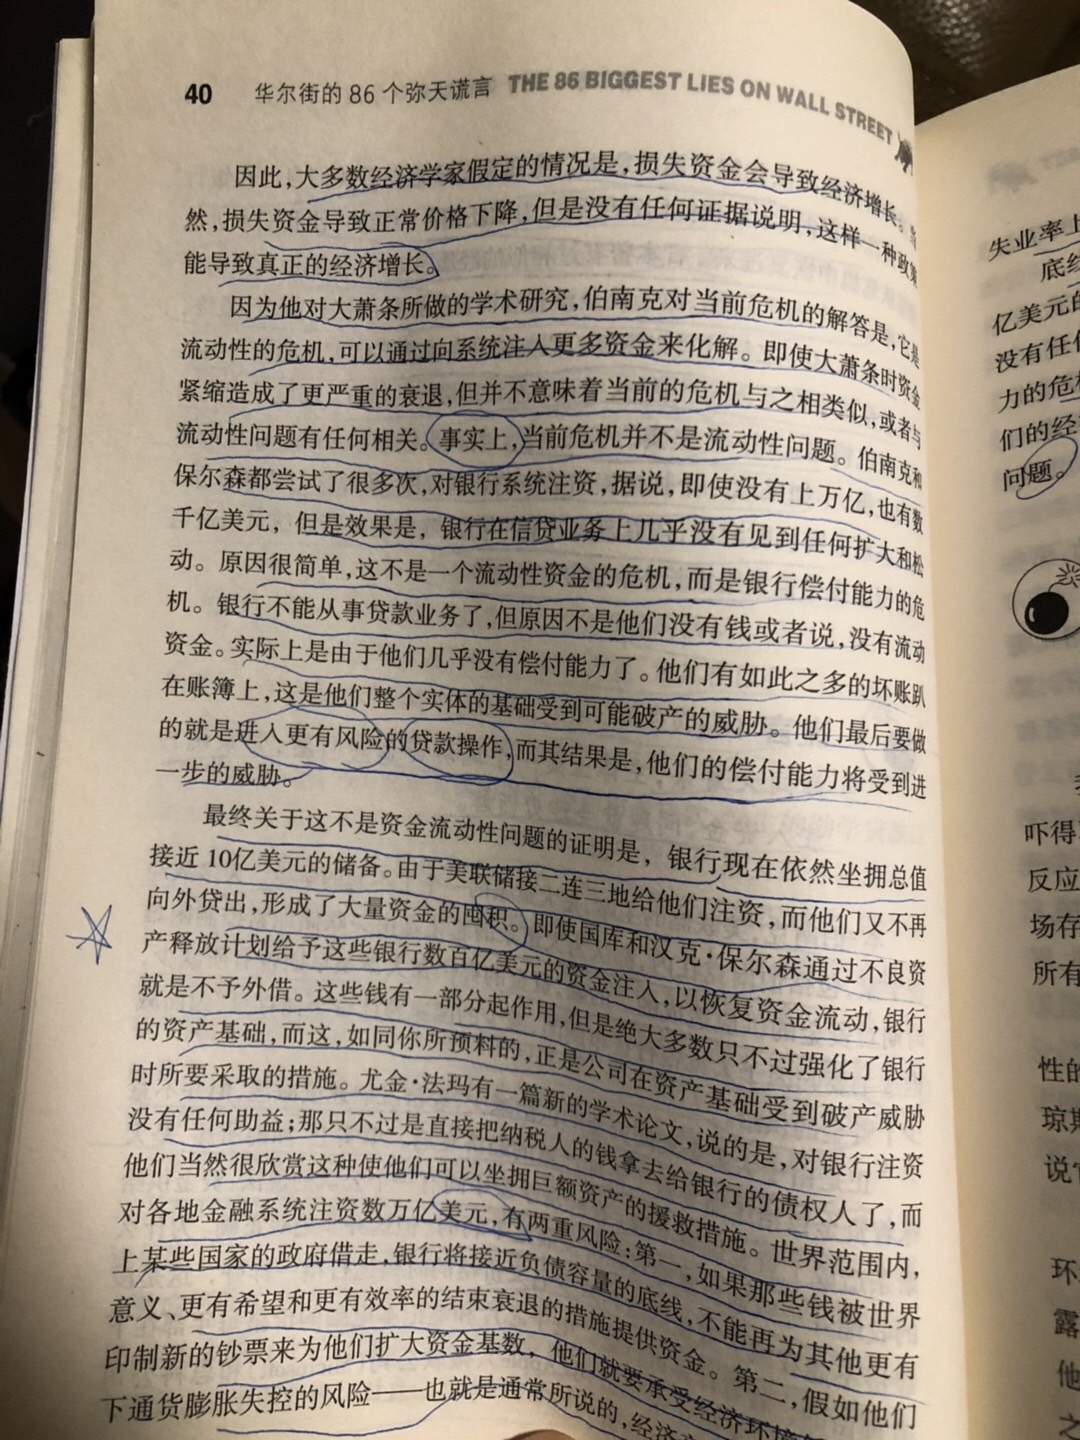 40 华尔街的86个弥天谎言 THE 86 BIGGEST LIES ON WALL STREET
因此,大多数经济学家假定的情况是,损失资金会导致经济增长。
然,损失资金导致正常价格下降,但是没有任何证据说明,这样一种政策
能导致真正的经济增长。
因为他对大萧条所做的学术研究,伯南克对当前危机的解答是,它是
流动性的危机,可以通过向系统注入更多资金来化解。即使大萧条时资金
紧缩造成了更严重的衰退,但并不意味着当前的危机与之相类似,或者与
流动性问题有任何相关。事实上,当前危机并不是流动性问题。伯南克和
保尔森都尝试了很多次,对银行系统注资,据说,即使没有上万亿,也有数
千亿美元，但是效果是，银行在信贷业务上几乎没有见到任何扩大和松
动。原因很简单,这不是一个流动性资金的危机,而是银行偿付能力的危
机。银行不能从事贷款业务了,但原因不是他们没有钱或者说,没有流动
资金。实际上是由于他们几乎没有偿付能力了。他们有如此之多的坏账趴
在账簿上,这是他们整个实体的基础受到可能破产的威胁。他们最后要做
的就是进入更有风险的贷款操作,而其结果是,他们的偿付能力将受到进
一步的威胁。
最终关于这不是资金流动性问题的证明是，银行现在依然坐拥总值
接近10亿美元的储备。由于美联储接二连三地给他们注资,而他们又不再
向外贷出,形成了大量资金的囤积。即使国库和汉克·保尔森通过不良资
产释放计划给予这些银行数百亿美元的资金注入,以恢复资金流动,银行
就是不予外借。这些钱有一部分起作用,但是绝大多数只不过强化了银行
的资产基础,而这,如同你所预料的,正是公司在资产基础受到破产威胁
时所要采取的措施。尤金·法玛有一篇新的学术论文,说的是,对银行注资
没有任何助益;那只不过是直接把纳税人的钱拿去给银行的债权人了,而
他们当然很欣赏这种使他们可以坐拥巨额资产的援救措施。世界范围内,
对各地金融系统注资数万亿美元,有两重风险:第一,如果那些钱被世界
上某些国家的政府借走,银行将接近负债容量的底线,不能再为其他更有
意义、更有希望和更有效率的结束衰退的措施提供资金。第二,假如他们
印制新的钞票来为他们扩大资金基数，他们就要承受经济环境
下通货膨胀失控的风险——也就是通常所说的,经济
失业率上
底线
亿美元的
没有任何
力的危机
们的经
问题。
吓得
反应
场存
所有
性的
琼斯
说
环
露
他
之